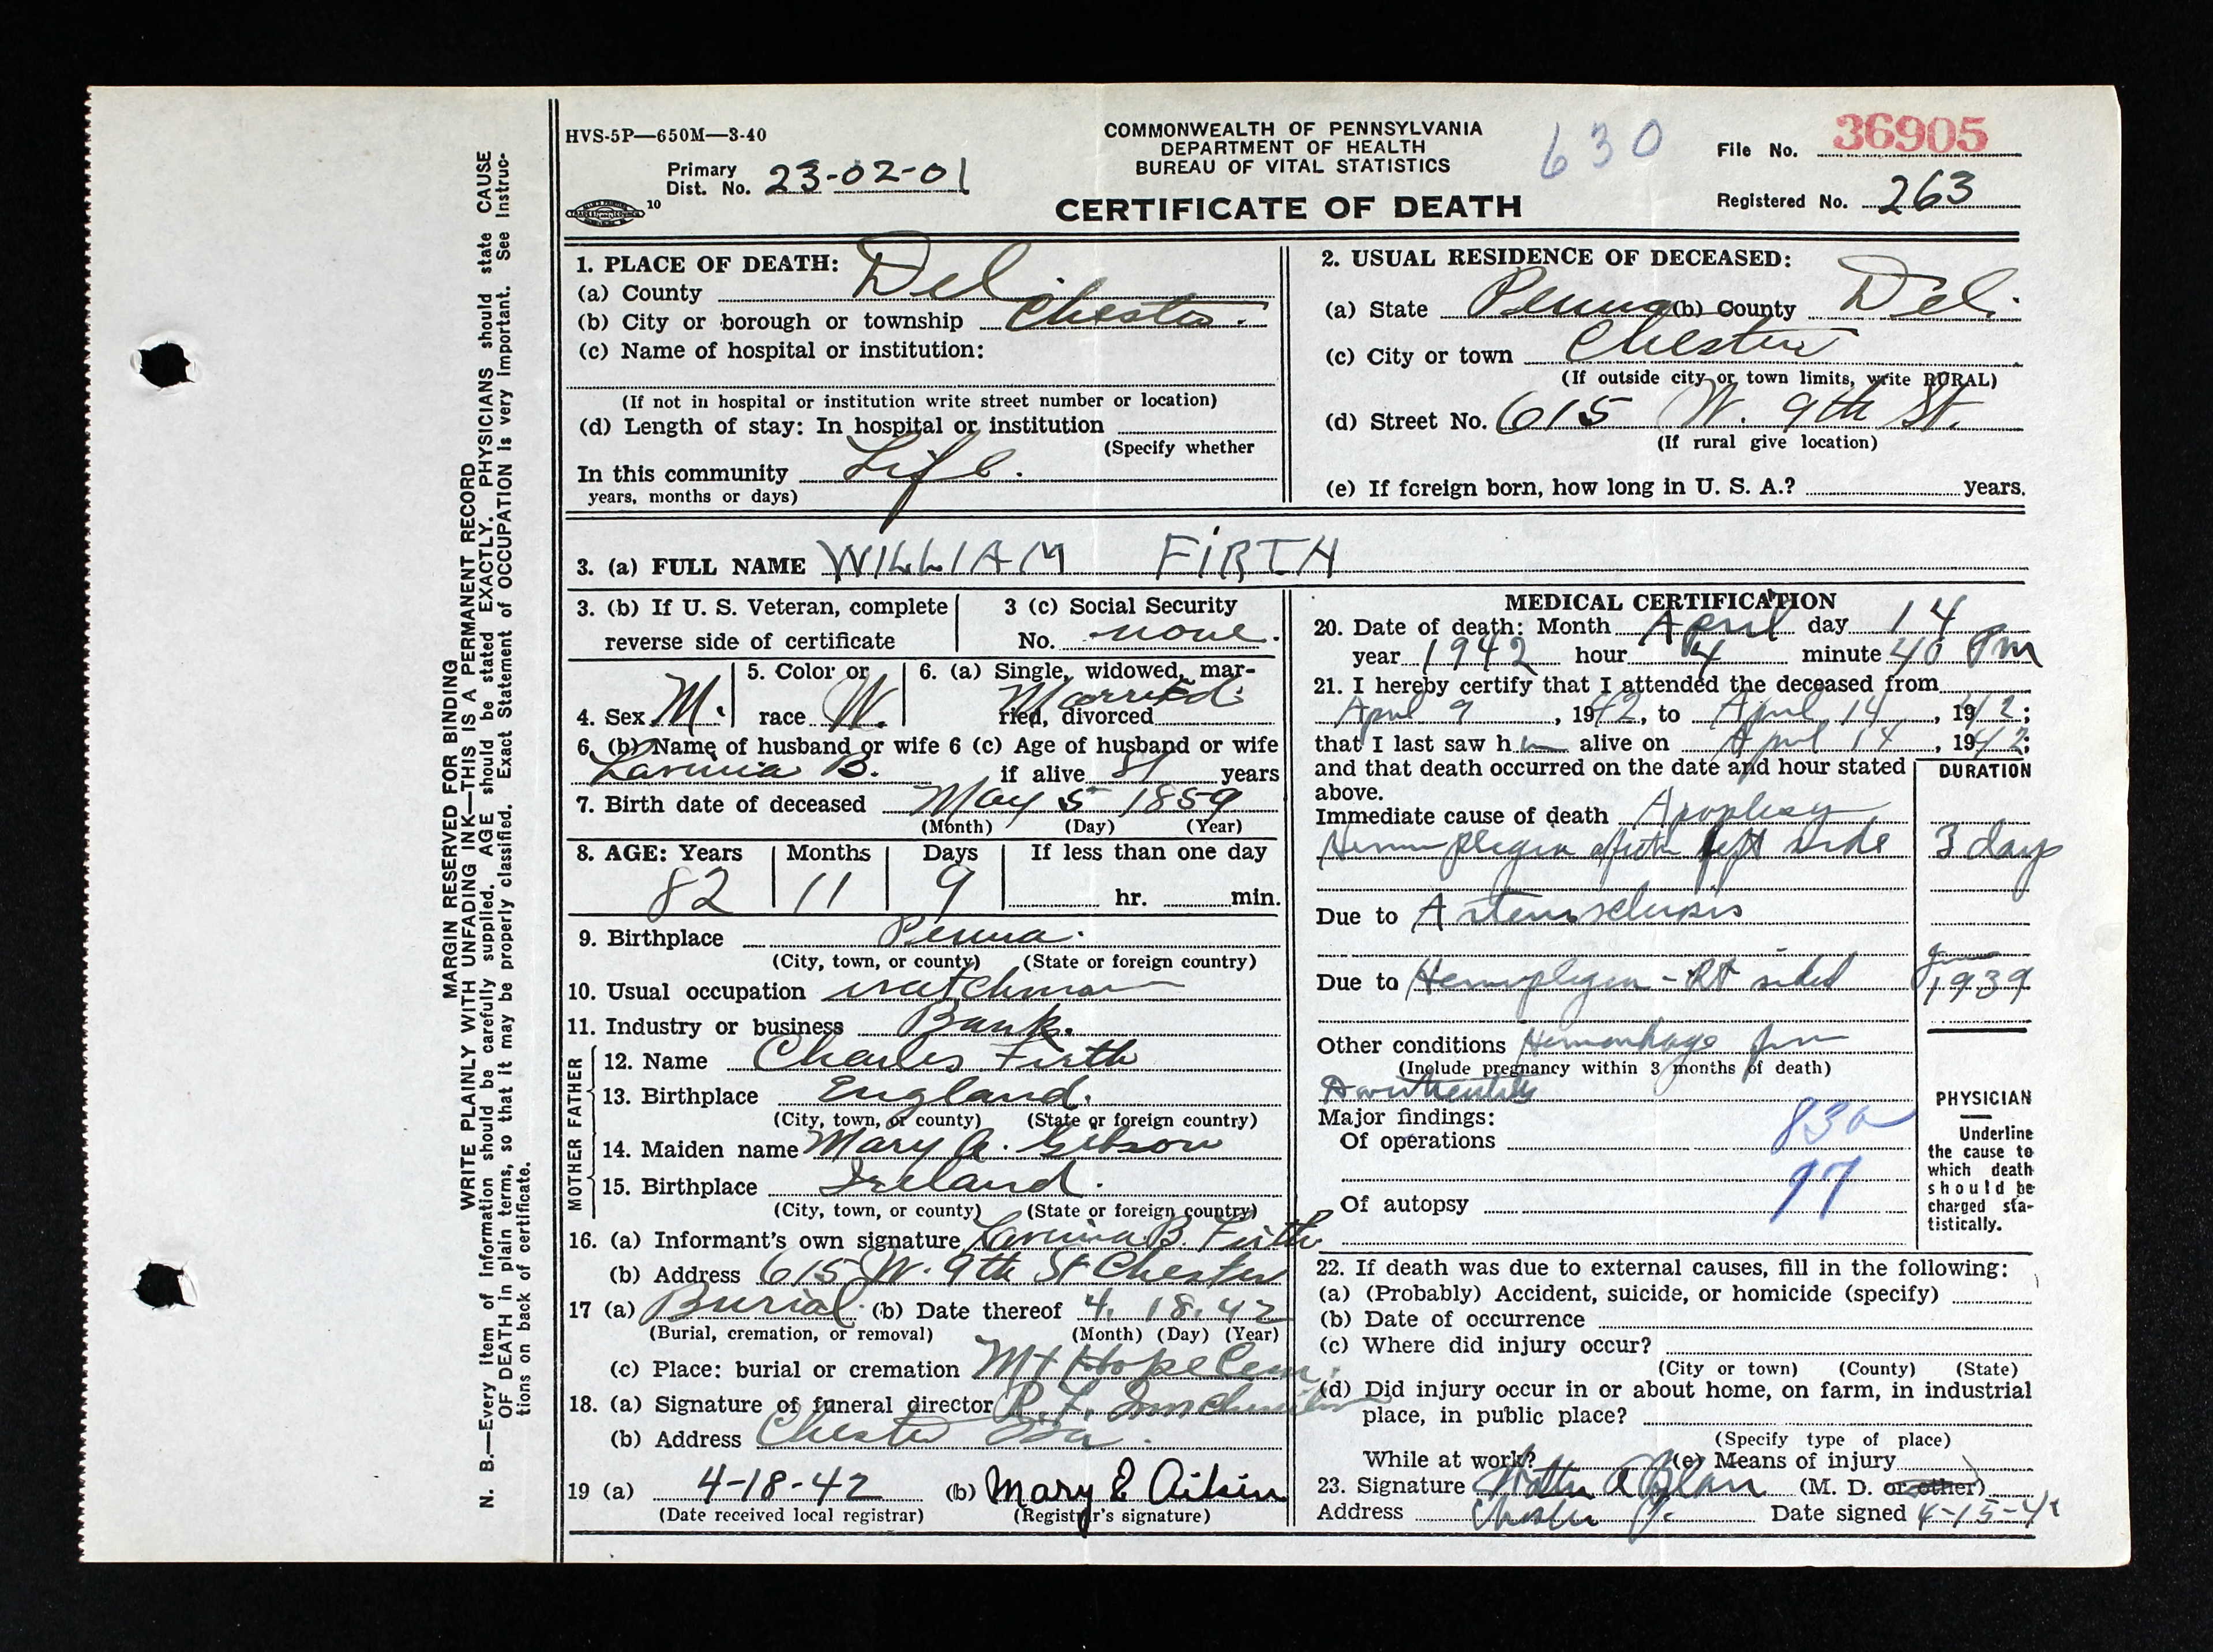 HVS-5P—650M—3-40
COMMONWEALTH OF PENNSYLVANIA
DEPARTMENT OF HEALTH
BUREAU OF VITAL STATISTICS
630
File No. 36905
Primary
Dist. No. 23-02-01
10
CERTIFICATE OF DEATH
Registered No. 263
1. PLACE OF DEATH:
(a) County Del
(b) City or borough or township Chester.
(c) Name of hospital or institution:
(If not in hospital or institution write street number or location)
(d) Length of stay: In hospital or institution
(Specify whether
In this community Life.
years, months or days)
2. USUAL RESIDENCE OF DECEASED:
(a) State Penna (b) County Del.
(c) City or town Chester
(If outside city or town limits, write RURAL)
(d) Street No. 615 W. 9th St.
(If rural give location)
(e) If foreign born, how long in U. S. A.? years.
3. (a) FULL NAME WILLIAM FIRTH
3. (b) If U. S. Veteran, complete
reverse side of certificate
3 (c) Social Security
No. none.
4. Sex M.
5. Color or
race W.
6. (a) Single, widowed, mar-
ried, divorced Married.
6. (b) Name of husband or wife
Lavinia B.
6 (c) Age of husband or wife
if alive 81 years
7. Birth date of deceased May 5 1859
(Month) (Day) (Year)
8. AGE: Years Months Days If less than one day
82 11 9 hr. min.
9. Birthplace Penna.
(City, town, or county) (State or foreign country)
10. Usual occupation watchman
11. Industry or business Bank.
FATHER
12. Name Charles Firth
13. Birthplace England.
(City, town, or county) (State or foreign country)
MOTHER
14. Maiden name Mary A. Gibson
15. Birthplace Ireland.
(City, town, or county) (State or foreign country)
16. (a) Informant's own signature Lavinia B. Firth
(b) Address 615 W. 9th St Chester
17 (a) Burial. (b) Date thereof 4. 18. 42
(Burial, cremation, or removal) (Month) (Day) (Year)
(c) Place: burial or cremation Mt Hope Cem.
18. (a) Signature of funeral director
(b) Address Chester Pa.
19 (a) 4-18-42 (b) Mary E Aikin
(Date received local registrar) (Registrar's signature)
MEDICAL CERTIFICATION
20. Date of death: Month April day 14
year 1942 hour 4 minute 40 Pm
21. I hereby certify that I attended the deceased from
April 9, 1942, to April 14, 1942;
that I last saw him alive on April 14, 1942;
and that death occurred on the date and hour stated
above.
DURATION
Immediate cause of death Apoplexy
Hemiplegia left side 3 days
Due to Arteriosclerosis
Due to Hemiplegia - Rt sided June 1939
Other conditions Hemorrhage from
(Include pregnancy within 3 months of death)
Major findings:
Of operations 83a
97
Of autopsy
PHYSICIAN
Underline
the cause to
which death
should be
charged sta-
tistically.
22. If death was due to external causes, fill in the following:
(a) (Probably) Accident, suicide, or homicide (specify)
(b) Date of occurrence
(c) Where did injury occur?
(City or town) (County) (State)
(d) Did injury occur in or about home, on farm, in industrial
place, in public place?
(Specify type of place)
While at work? (e) Means of injury
23. Signature (M. D. or other)
Address Chester Date signed 4-15-42
MARGIN RESERVED FOR BINDING
WRITE PLAINLY WITH UNFADING INK—THIS IS A PERMANENT RECORD
N. B.—Every item of information should be carefully supplied. AGE should be stated EXACTLY. PHYSICIANS should state CAUSE
OF DEATH in plain terms, so that it may be properly classified. Exact Statement of OCCUPATION is very important. See Instruc-
tions on back of certificate.